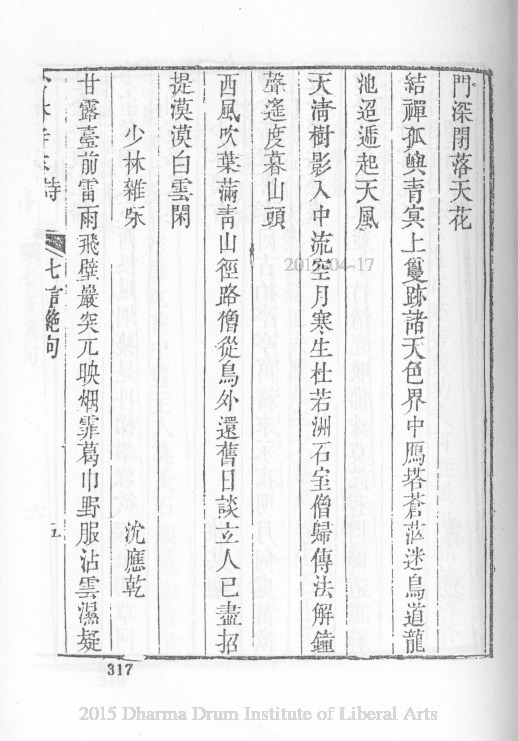 門深閉落天花
結禪孤嶼青㝠上雙跡諸天色界中鴈塔蒼茫迷鳥道龍
池迢遞起天風
天淸樹影入中流空月寒生杜若洲石室僧歸傳法解鐘
聲遙度暮山頭
西風吹葉滿靑山徑路僧從鳥外還舊日談立人已盡招
提漠漠白雲閑
少林雜咏 沈應乾
甘露臺前雷雨飛壁巖突兀映烟霏葛巾野服沾雲濕疑
少林寺古詩 七言絶句 五
317
2015-04-17
2015 Dharma Drum Institute of Liberal Arts